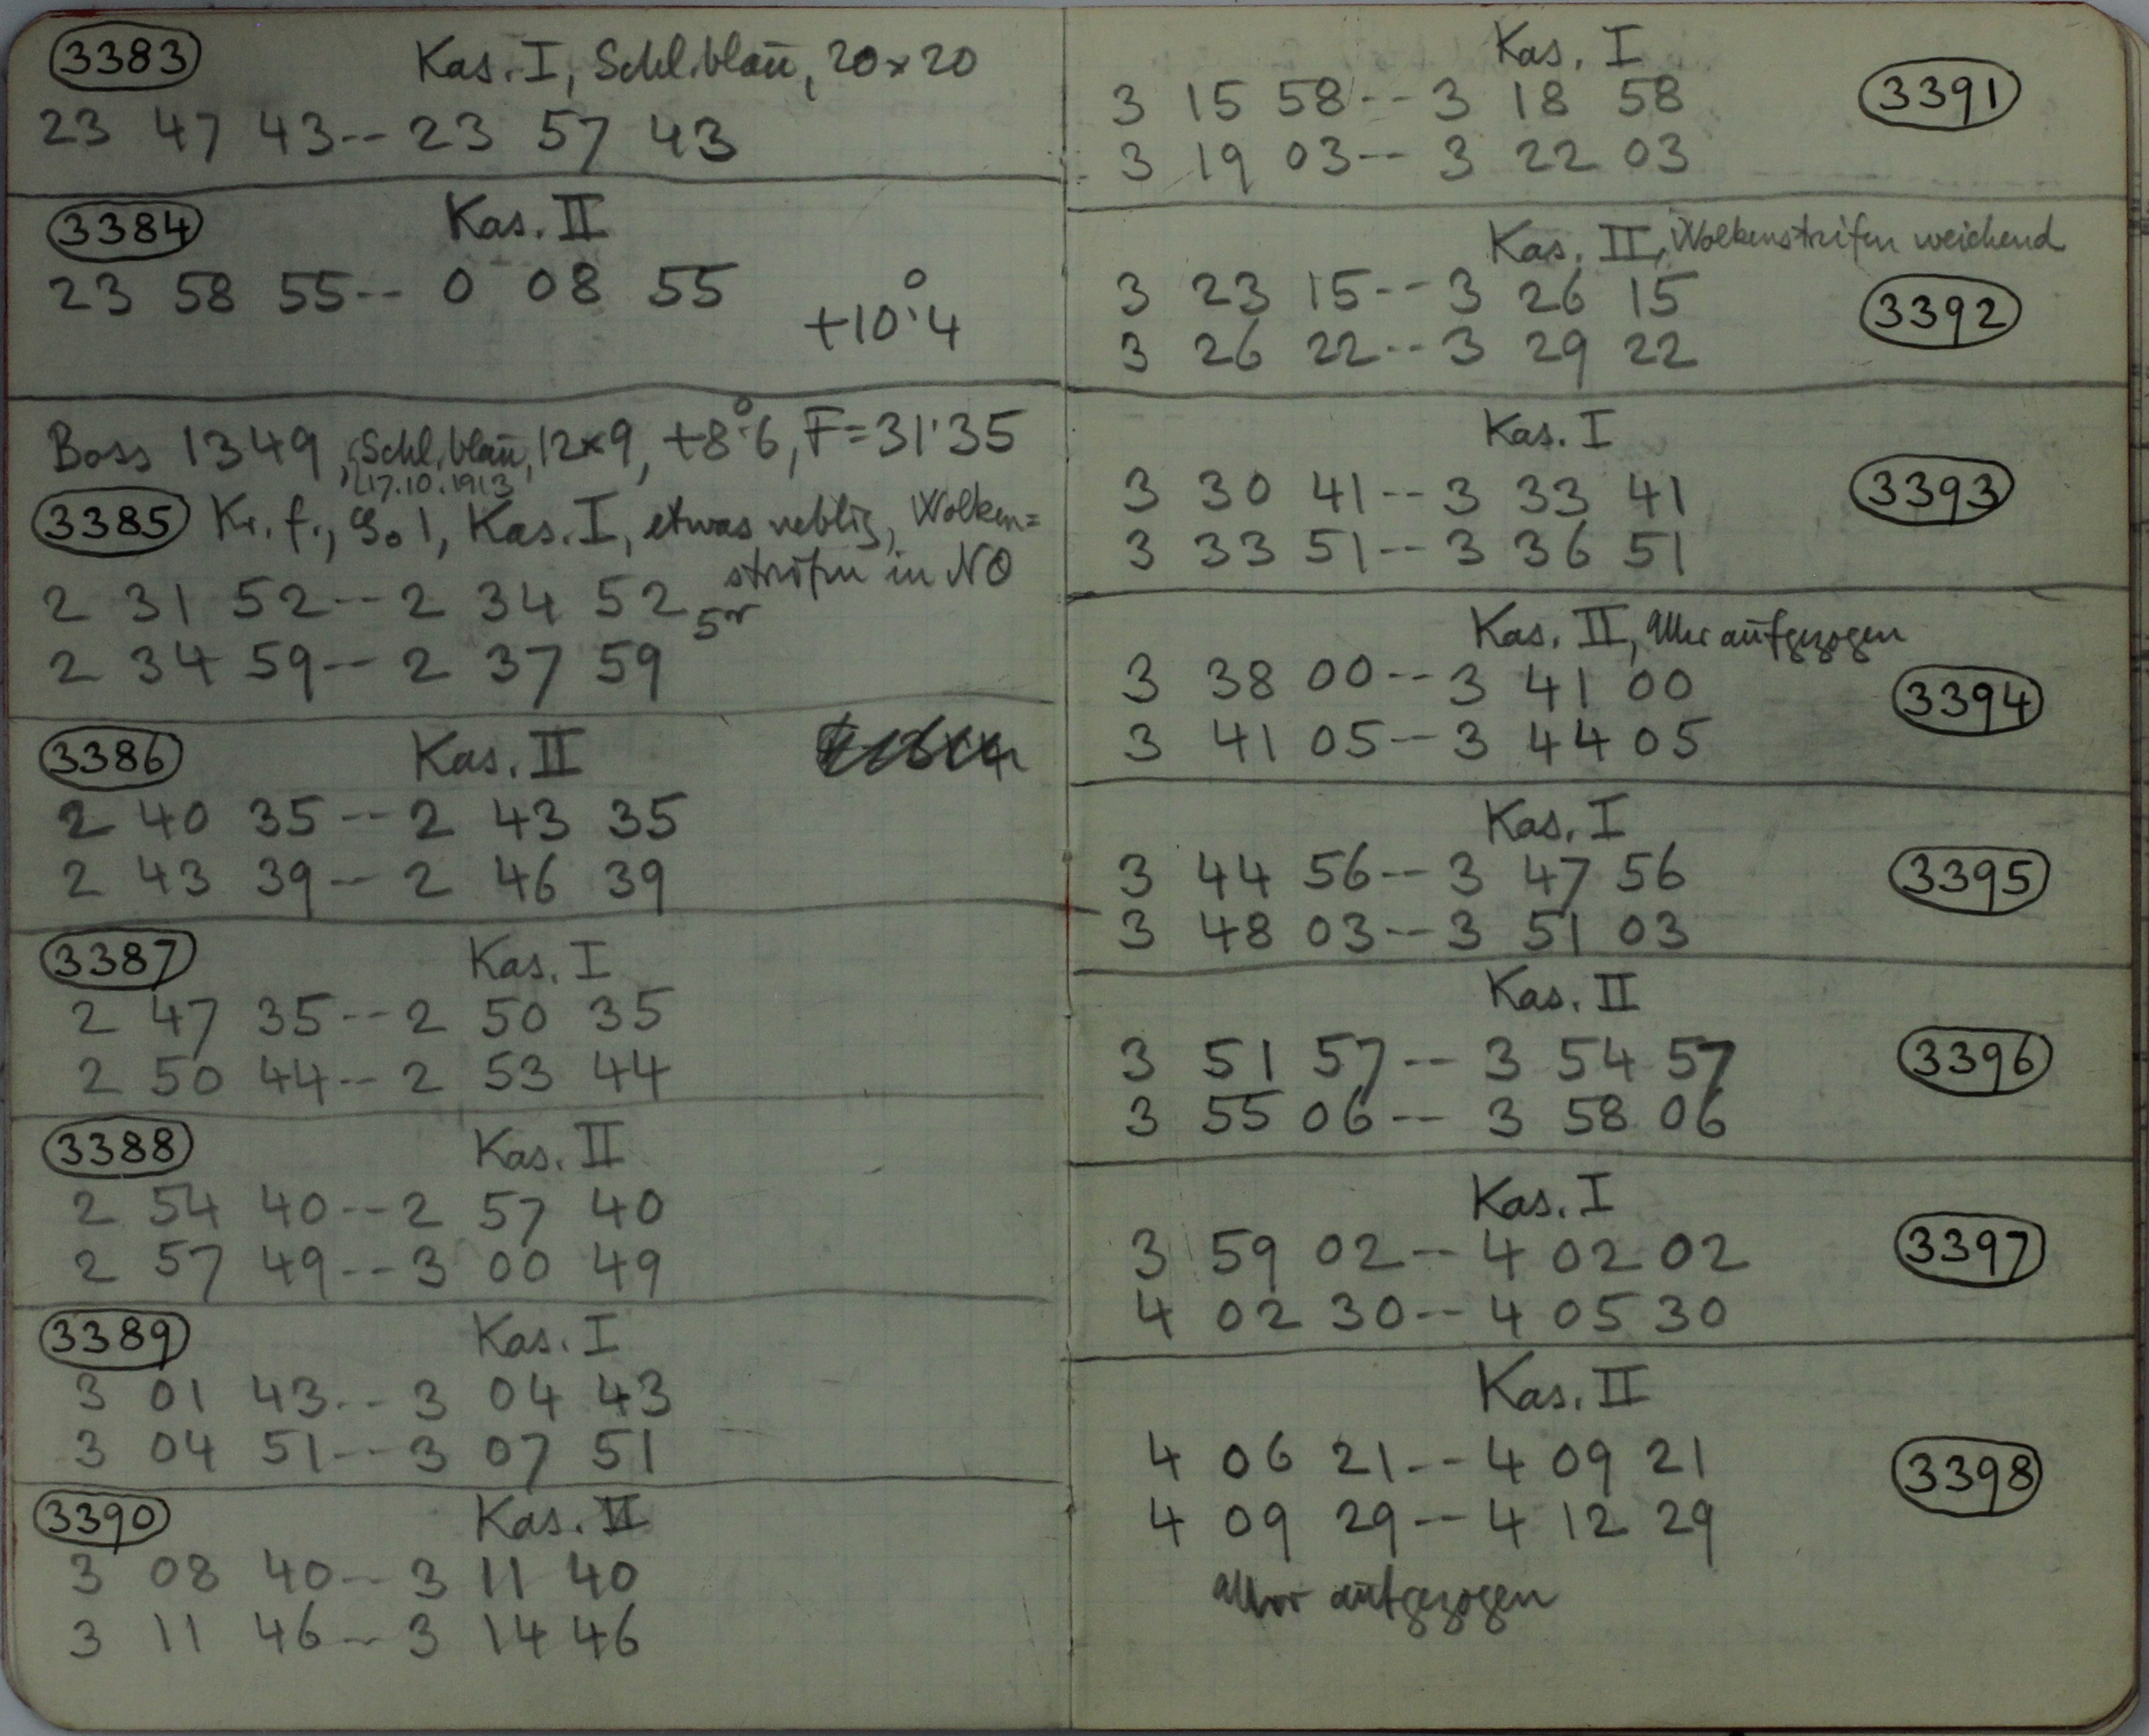 3383 Kas. I, Schl. blau, 20×20
23 47 43-- 23 57 43
3384 Kas. II
23 58 55-- 0 08 55
+10°.4
Boss 1349, Schl. blau, 12×9, +8°.6, F=31.35
17.10.1913
3385 Kr. f., I, Kas. I, etwas neblig, Wolken=
streifen in NO
2 31 52-- 2 34 52
2 34 59-- 2 37 59
3386 Kas. II
2 40 35-- 2 43 35
2 43 39-- 2 46 39
3387 Kas. I
2 47 35-- 2 50 35
2 50 44-- 2 53 44
3388 Kas. II
2 54 40-- 2 57 40
2 57 49-- 3 00 49
3389 Kas. I
3 01 43-- 3 04 43
3 04 51-- 3 07 51
3390 Kas. II
3 08 40-- 3 11 40
3 11 46-- 3 14 46
Kas. I
3 15 58-- 3 18 58 3391
3 19 03-- 3 22 03
Kas. II, Wolkenstreifen weichend
3 23 15-- 3 26 15 3392
3 26 22-- 3 29 22
Kas. I
3 30 41-- 3 33 41 3393
3 33 51-- 3 36 51
Kas. II, Uhr aufgezogen
3 38 00-- 3 41 00 3394
3 41 05-- 3 44 05
Kas. I
3 44 56-- 3 47 56 3395
3 48 03-- 3 51 03
Kas. II
3 51 57-- 3 54 57 3396
3 55 06-- 3 58 06
Kas. I
3 59 02-- 4 02 02 3397
4 02 30-- 4 05 30
Kas. II
4 06 21-- 4 09 21 3398
4 09 29-- 4 12 29
aufgezogen